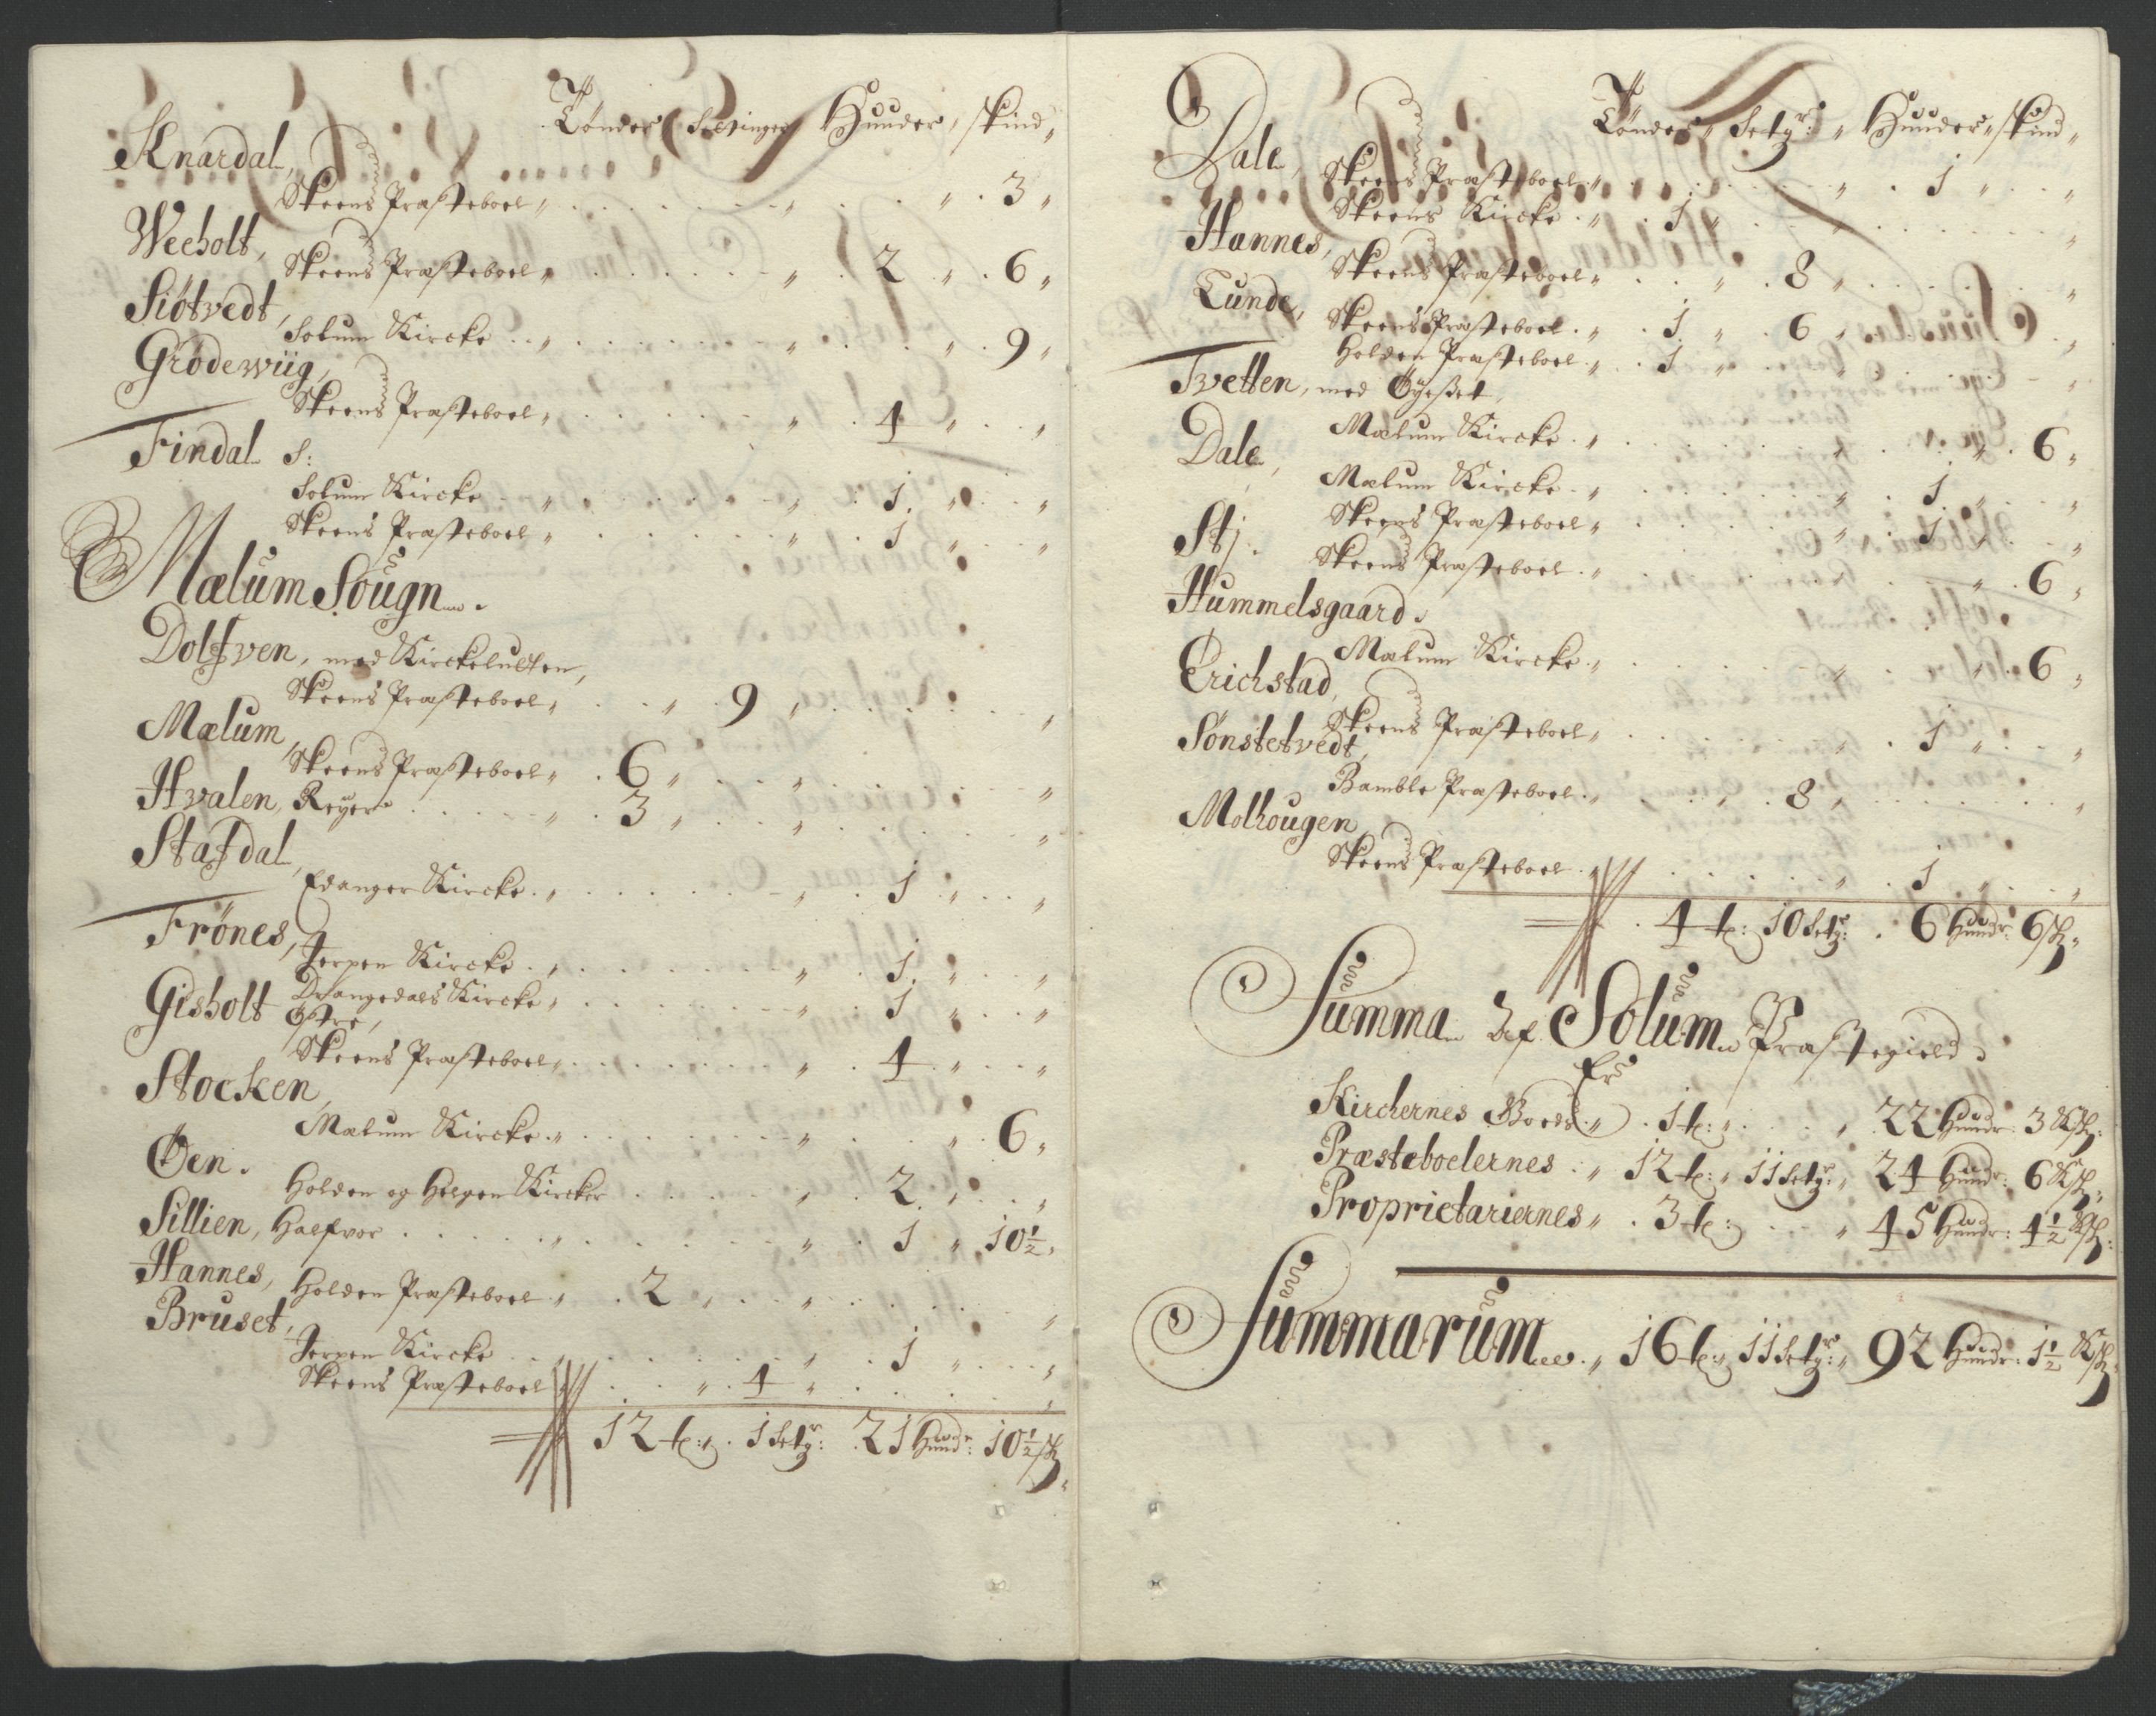 Tønder Setinger Huuder, skind,
Knardal,
Skeens Præsteboel „ . . . „ . „ . 3 „
Weeholt,
Skeens Præsteboel „ . . . „ . 2 „ . 6 „
Siøtvedt,
Solum Kircke . . „ . . . „ . „ . 9 „
Grødewiig,
Skeens Præsteboel „ . . . „ . 4 „ . . „
Findal S:
Solum Kircke . . „ . . . „ . 1 „ . . „
Skeens Præsteboel „ . . . „ . 1 „ . . „
Mælum Sougn.
Dolfven, med Kirckelutten,
Skeens Præsteboel „ . . „ 9 „ . . . „
Mælum,
Skeens Præsteboel „ . 6 „ . . „ . . „
Hvalen, Reyer . . . „ . 3 „ . . „ . . „
Stafdal,
Edanger Kircke . „ . . . „ . 1 „ . . „
Frönes,
Jerpen Kircke . „ . . . „ . 1 „ . . „
Drangedals Kircke „ . . . „ . 1 „ . . „
Gisholt Østre,
Skeens Præsteboel „ . . . „ . 4 „ . . „
Stocken,
Mælum Kircke . „ . . . „ . „ . 6 „
Øen.
Holden og Helgen Kircker . . . „ . 2 „ . . „
Sillien, Halfvor . . . „ . . „ . 1 „ 10½ „
Hannes, Holden Præsteboel „ . 2 „ . . „ . . „
Bruset,
Jerpen Kircke . . . „ . 1 „ . . „
Skeens Præsteboel . . „ . 4 „ . . . „
12 t: 1 Setgr: 21 Hudr: 10½ sk
Tønder „ Setgr: „ Huuder „ skind „
Dale,
Skeens Præsteboel „ . . . „ . 1 „ . . „
Skeens Kircke . „ . 1 „ . . . „
Hannes,
Skeens Præsteboel „ . . „ . 8 „ . . . „
Lunde,
Skeens Præsteboel . „ . 1 „ . 6 „ . . „
Holden Præsteboel . „ . 1 „ . . . „
Tvetten, med Øyeset,
Mælum Kircke . „ . . . „ . „ . 6 „
Dale,
Mælum Kircke . „ . . . „ . 1 „ . . „
Skeens Præsteboel „ . . . „ . 1 „ . . „
Stj.
Skeens Præsteboel . „ . . . „ . „ . 6 „
Hummelsgaard.
Mælum Kircke . „ . . . „ . „ . 6 „
Erichstad,
Skeens Præsteboel „ . . . „ . 1 „ . . „
Sönstetvedt,
Bamble Præsteboel . „ . . „ . 8 „ . . . „
Molhougen,
Skeens Præsteboel . „ . . . „ . 1 „ . . „
4 t: 10 Setgr: . 6 Hudr: 6 sk „
Summa Af Solum Præstegield.
Er
Kirchernes Goeds „ . 1 t: „ . . „ 22 Hudr: 3 Sk:
Præsteboelernes : „ 12 t: „ 11 Setgr: „ 24 Hudr: 6 Sk:
Proprietariernes „ . 3 t: . . „ 45 Hudr: 4½ Sk:
Summarum „ 16 t: 11 Setgr: „ 92 Hudr: 1½ Sk